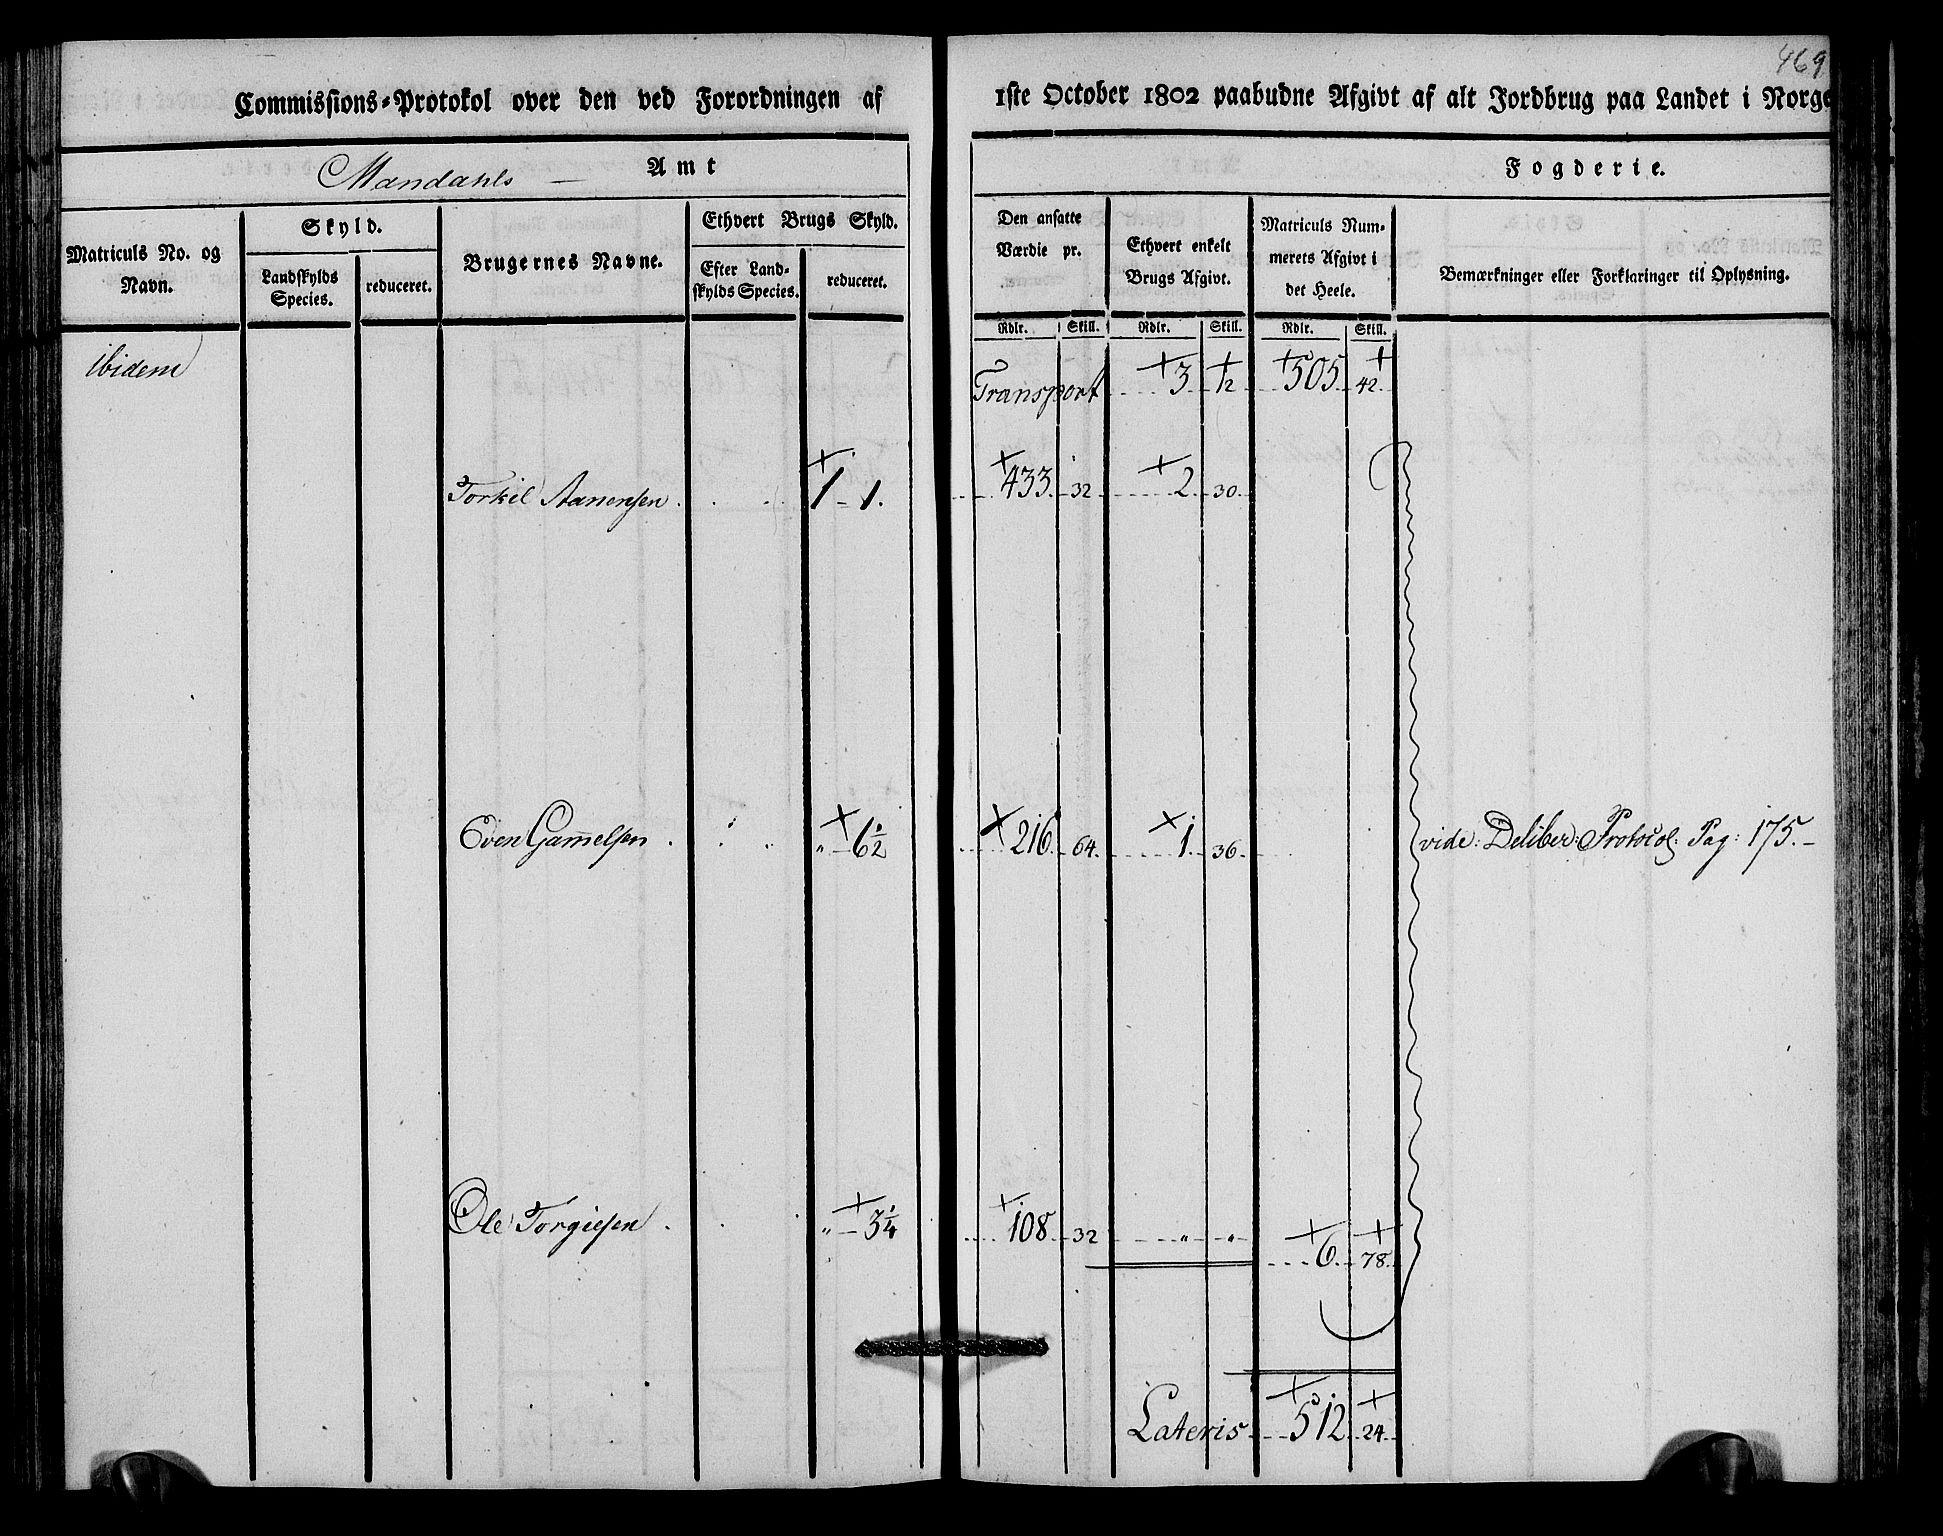 469
Commissions-Protokol over den ved Forordningen af 1ste October 1802 paabudne Afgivt af alt Jordbrug paa Landet i Norge
Mandahls — Amt Fogderie.
Matriculs No. og Navn.
Skyld.
Landskylds Species.
reduceret.
Brugernes Navne.
Ethvert Brugs Skyld.
Efter Landskylds Species.
reduceret.
Den ansatte Værdie pr.
Ethvert enkelt Brugs Afgivt.
Matriculs Nummerets Afgivt i det Heele.
Bemærkninger eller Forklaringer til Oplysning.
Rdlr. Skill. Rdlr. Skill. Rdlr. Skill.
ibidem Transport 3 12 505 42
Torkil Aanensen 1 - 1. 433 32 2 30
Even Gam̄elsen „ - 6½ 216 64 1 36 vide: Deliber: Protocol. Pag: 175. -
Ole Torgiesen „ - 3¼ 108 32 „ „ 6 78
Lateris 512 24